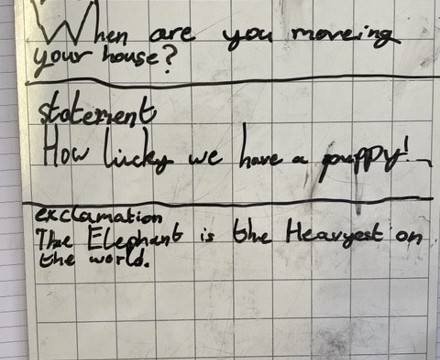 When are you moveing
your house?
statement
How lucky we have a puppy!
exclamation
The Elephant is the Heavyest on
the world.